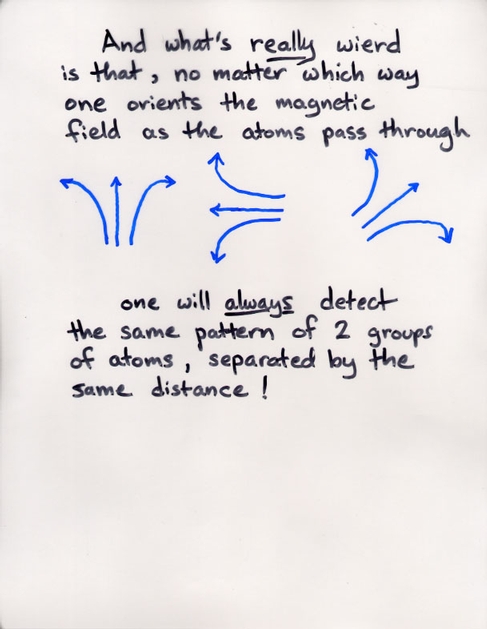 And what's really wierd
is that, no matter which way
one orients the magnetic
field as the atoms pass through
one will always detect
the same pattern of 2 groups
of atoms, separated by the
same distance!